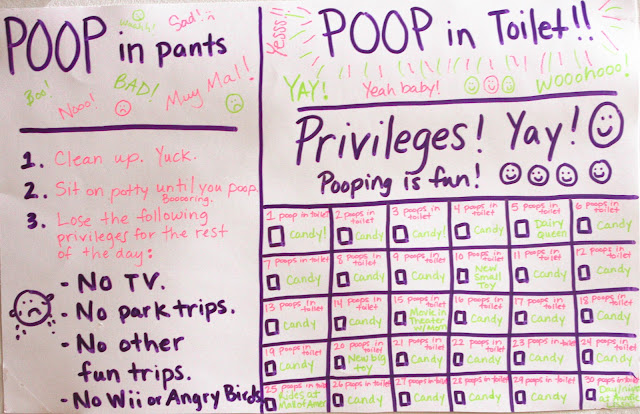 POOP in pants
Sad!
Boo!
Nooo!
BAD!
Muy Mal!
1. Clean up. Yuck.
2. Sit on potty until you poop.
Booooring.
3. Lose the following
privileges for the rest
of the day:
- No TV.
- No park trips.
- No other
fun trips.
- No Wii or Angry Birds
Yesss!!
POOP in Toilet!!
YAY!
Yeah baby!
Wooohooo!
Privileges! Yay!
Pooping is fun!
1 poop in toilet
Candy!
2 poops in toilet
Candy
3 poops in toilet
Candy!
4 poops in toilet
Candy
5 poops in toilet
Dairy
Queen
6 poops in toilet
Candy
7 poops in toilet
Candy
8 poops in toilet
Candy
9 poops in toilet
Candy
10 poops in toilet
New
Small
Toy
11 poops in toilet
Candy
12 poops in toilet
Candy
13 poops in toilet
Candy
14 poops in toilet
Candy
15 poops in toilet
Movie in
Theater
w/Mom
16 poops in toilet
Candy
17 poops in toilet
Candy
18 poops in toilet
Candy
19 poops in toilet
Candy
20 poops in toilet
New big
toy
21 poops in toilet
Candy
22 poops in toilet
Candy
23 poops in toilet
Candy
24 poops in toilet
Candy
25 poops in toilet
Rides at
Mall of Amer
26 poops in toilet
Candy
27 poops in toilet
Candy
28 poops in toilet
Candy
29 poops in toilet
Candy
30 poops in toilet